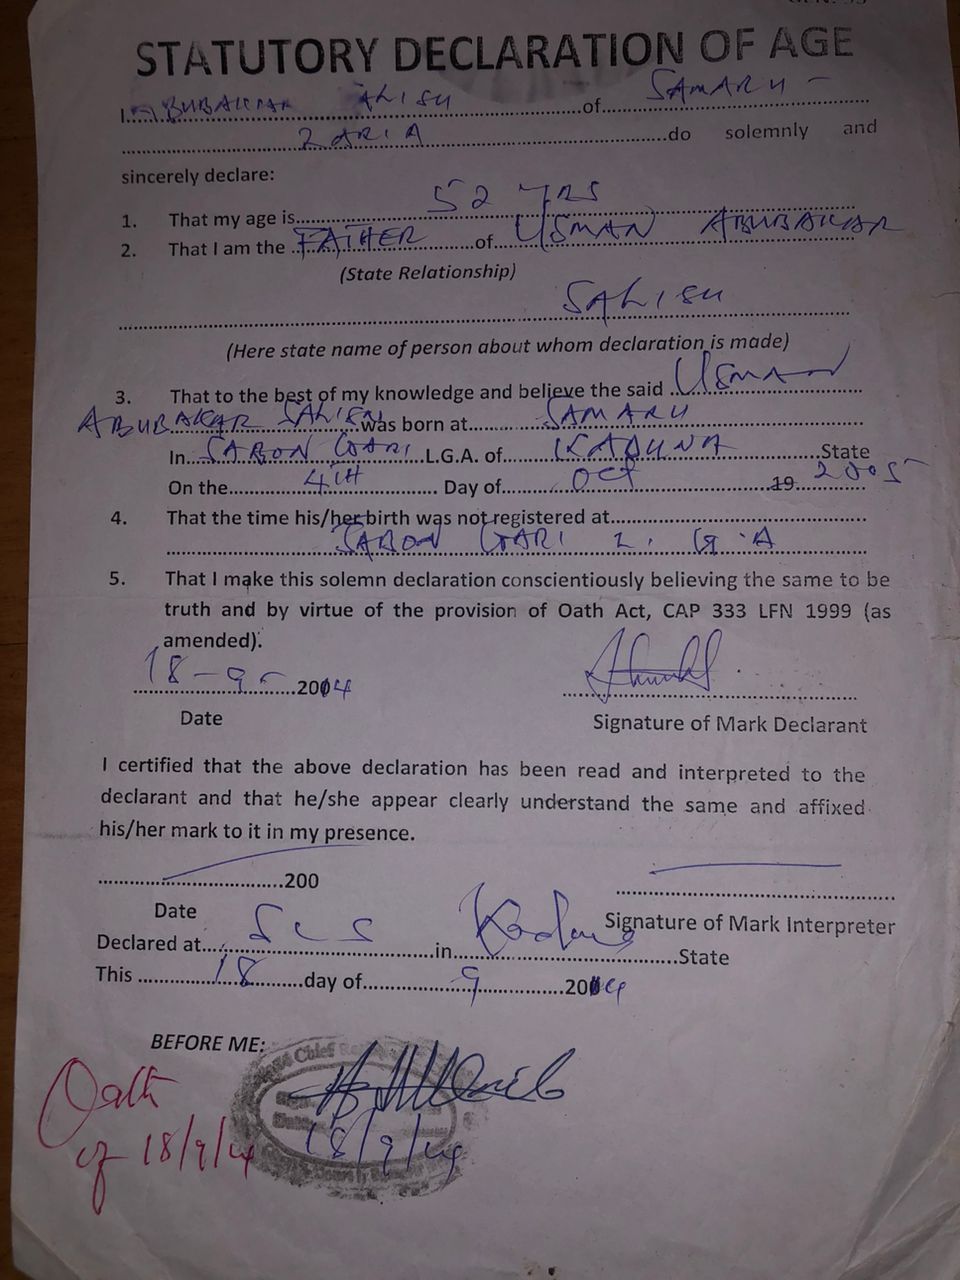 STATUTORY DECLARATION OF AGE
I ABUBAKAR SALISU of SAMARU -
ZARIA do solemnly and
sincerely declare:
1. That my age is 52 YRS
2. That I am the FATHER of USMAN ABUBAKAR
(State Relationship)
SALISU
(Here state name of person about whom declaration is made)
3. That to the best of my knowledge and believe the said USMAN
ABUBAKAR SALISU was born at SAMARU
In SABON GARI L.G.A. of KADUNA State
On the 4TH Day of OCT 19 2005
4. That the time his/her birth was not registered at
SABON GARI L. G. A
5. That I make this solemn declaration conscientiously believing the same to be
truth and by virtue of the provision of Oath Act, CAP 333 LFN 1999 (as
amended).
18 - 9 - 2014
Date Signature of Mark Declarant
I certified that the above declaration has been read and interpreted to the
declarant and that he/she appear clearly understand the same and affixed
his/her mark to it in my presence.
200
Date Signature of Mark Interpreter
Declared at in Kaduna State
This 18 day of 9 2014
BEFORE ME:
Chief
Oath
of 18/9/14
18/9/14